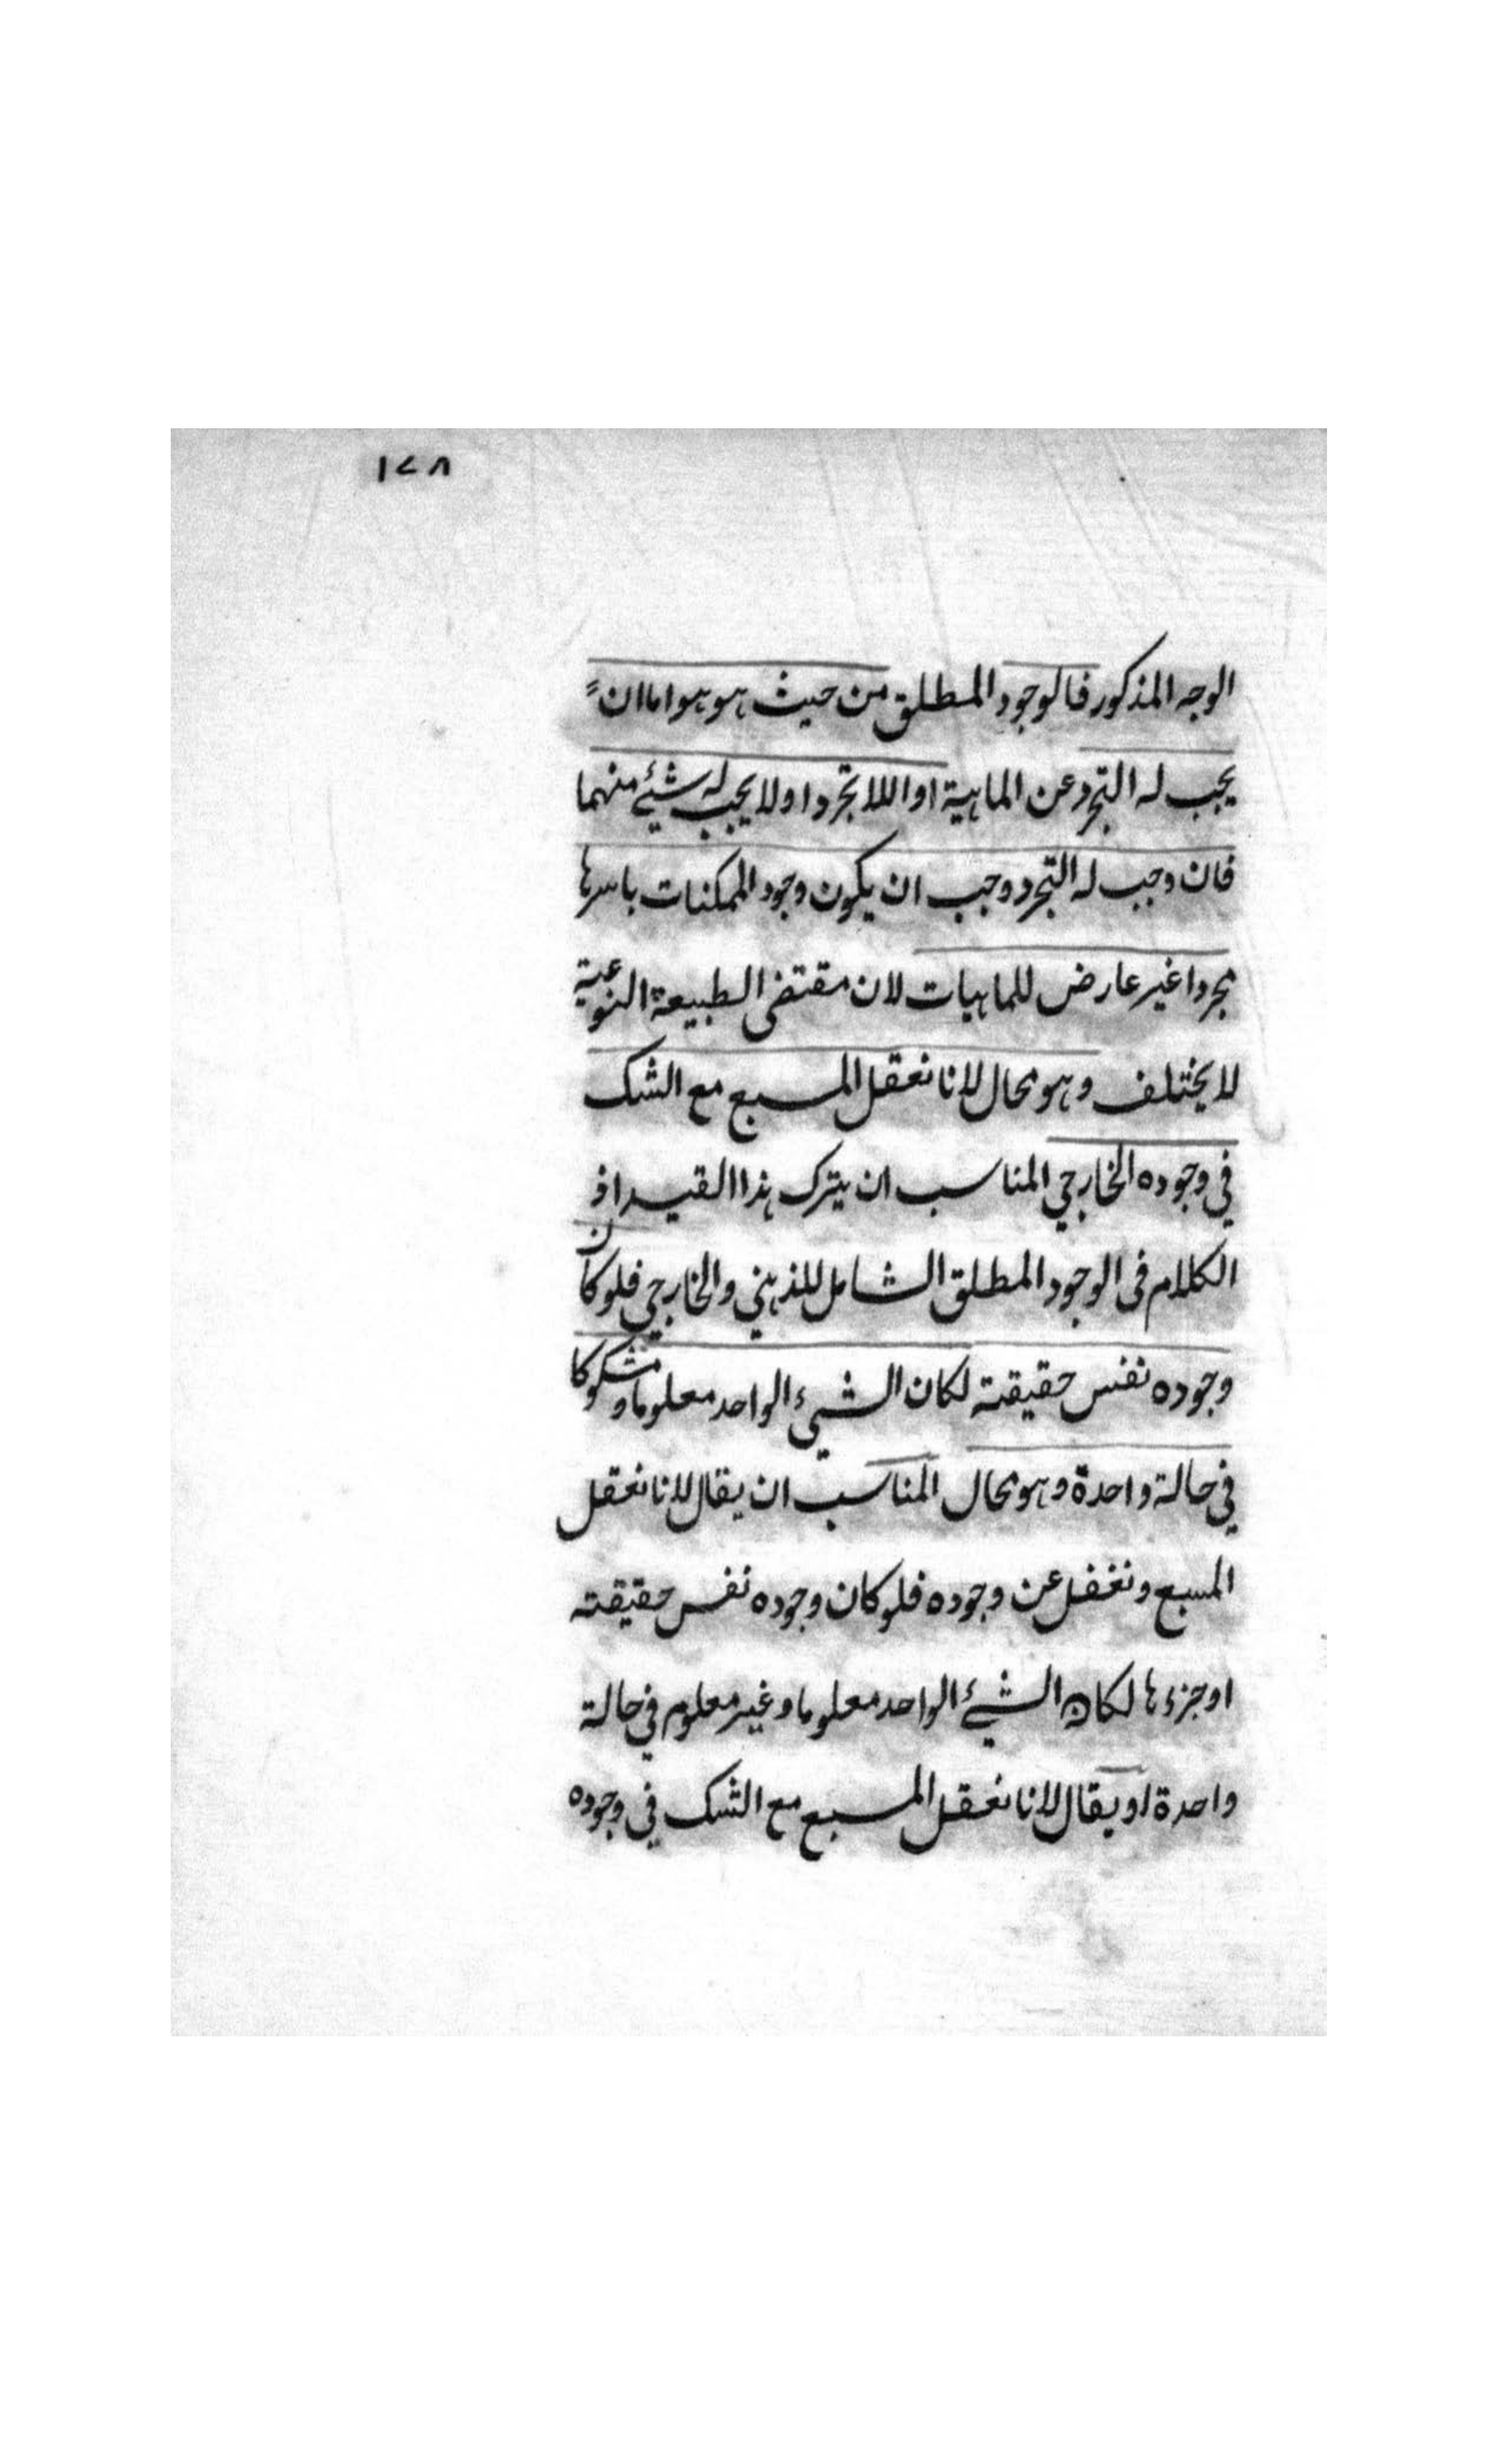 ١٢٨
الوجه المذكور فالوجود المطلق من حيث هو هو اما ان
يجب له التجرد عن الماهية او اللاتجرد او لا يجب له شيئ منهما
فان وجب له التجرد وجب ان يكون وجود الممكنات باسرها
مجردا غير عارض للماهيات لان مقتضى الطبيعة النوعية
لا يختلف وهو محال لانا نعقل المسبع مع الشك
في وجوده الخارجي المناسب ان يترك هذا القيد اذ
الكلام فى الوجود المطلق الشامل للذهني والخارجي فلو كان
وجوده نفس حقيقته لكان الشيئ الواحد معلوما ومشكوكا
في حالة واحدة وهو محال المناسب ان يقال لانا نعقل
المسبع ونغفل عن وجوده فلو كان وجوده نفس حقيقته
او جزءها لكان الشيئ الواحد معلوما وغير معلوم في حالة
واحدة او يقال لانا نعقل المسبع مع الشك في وجوده